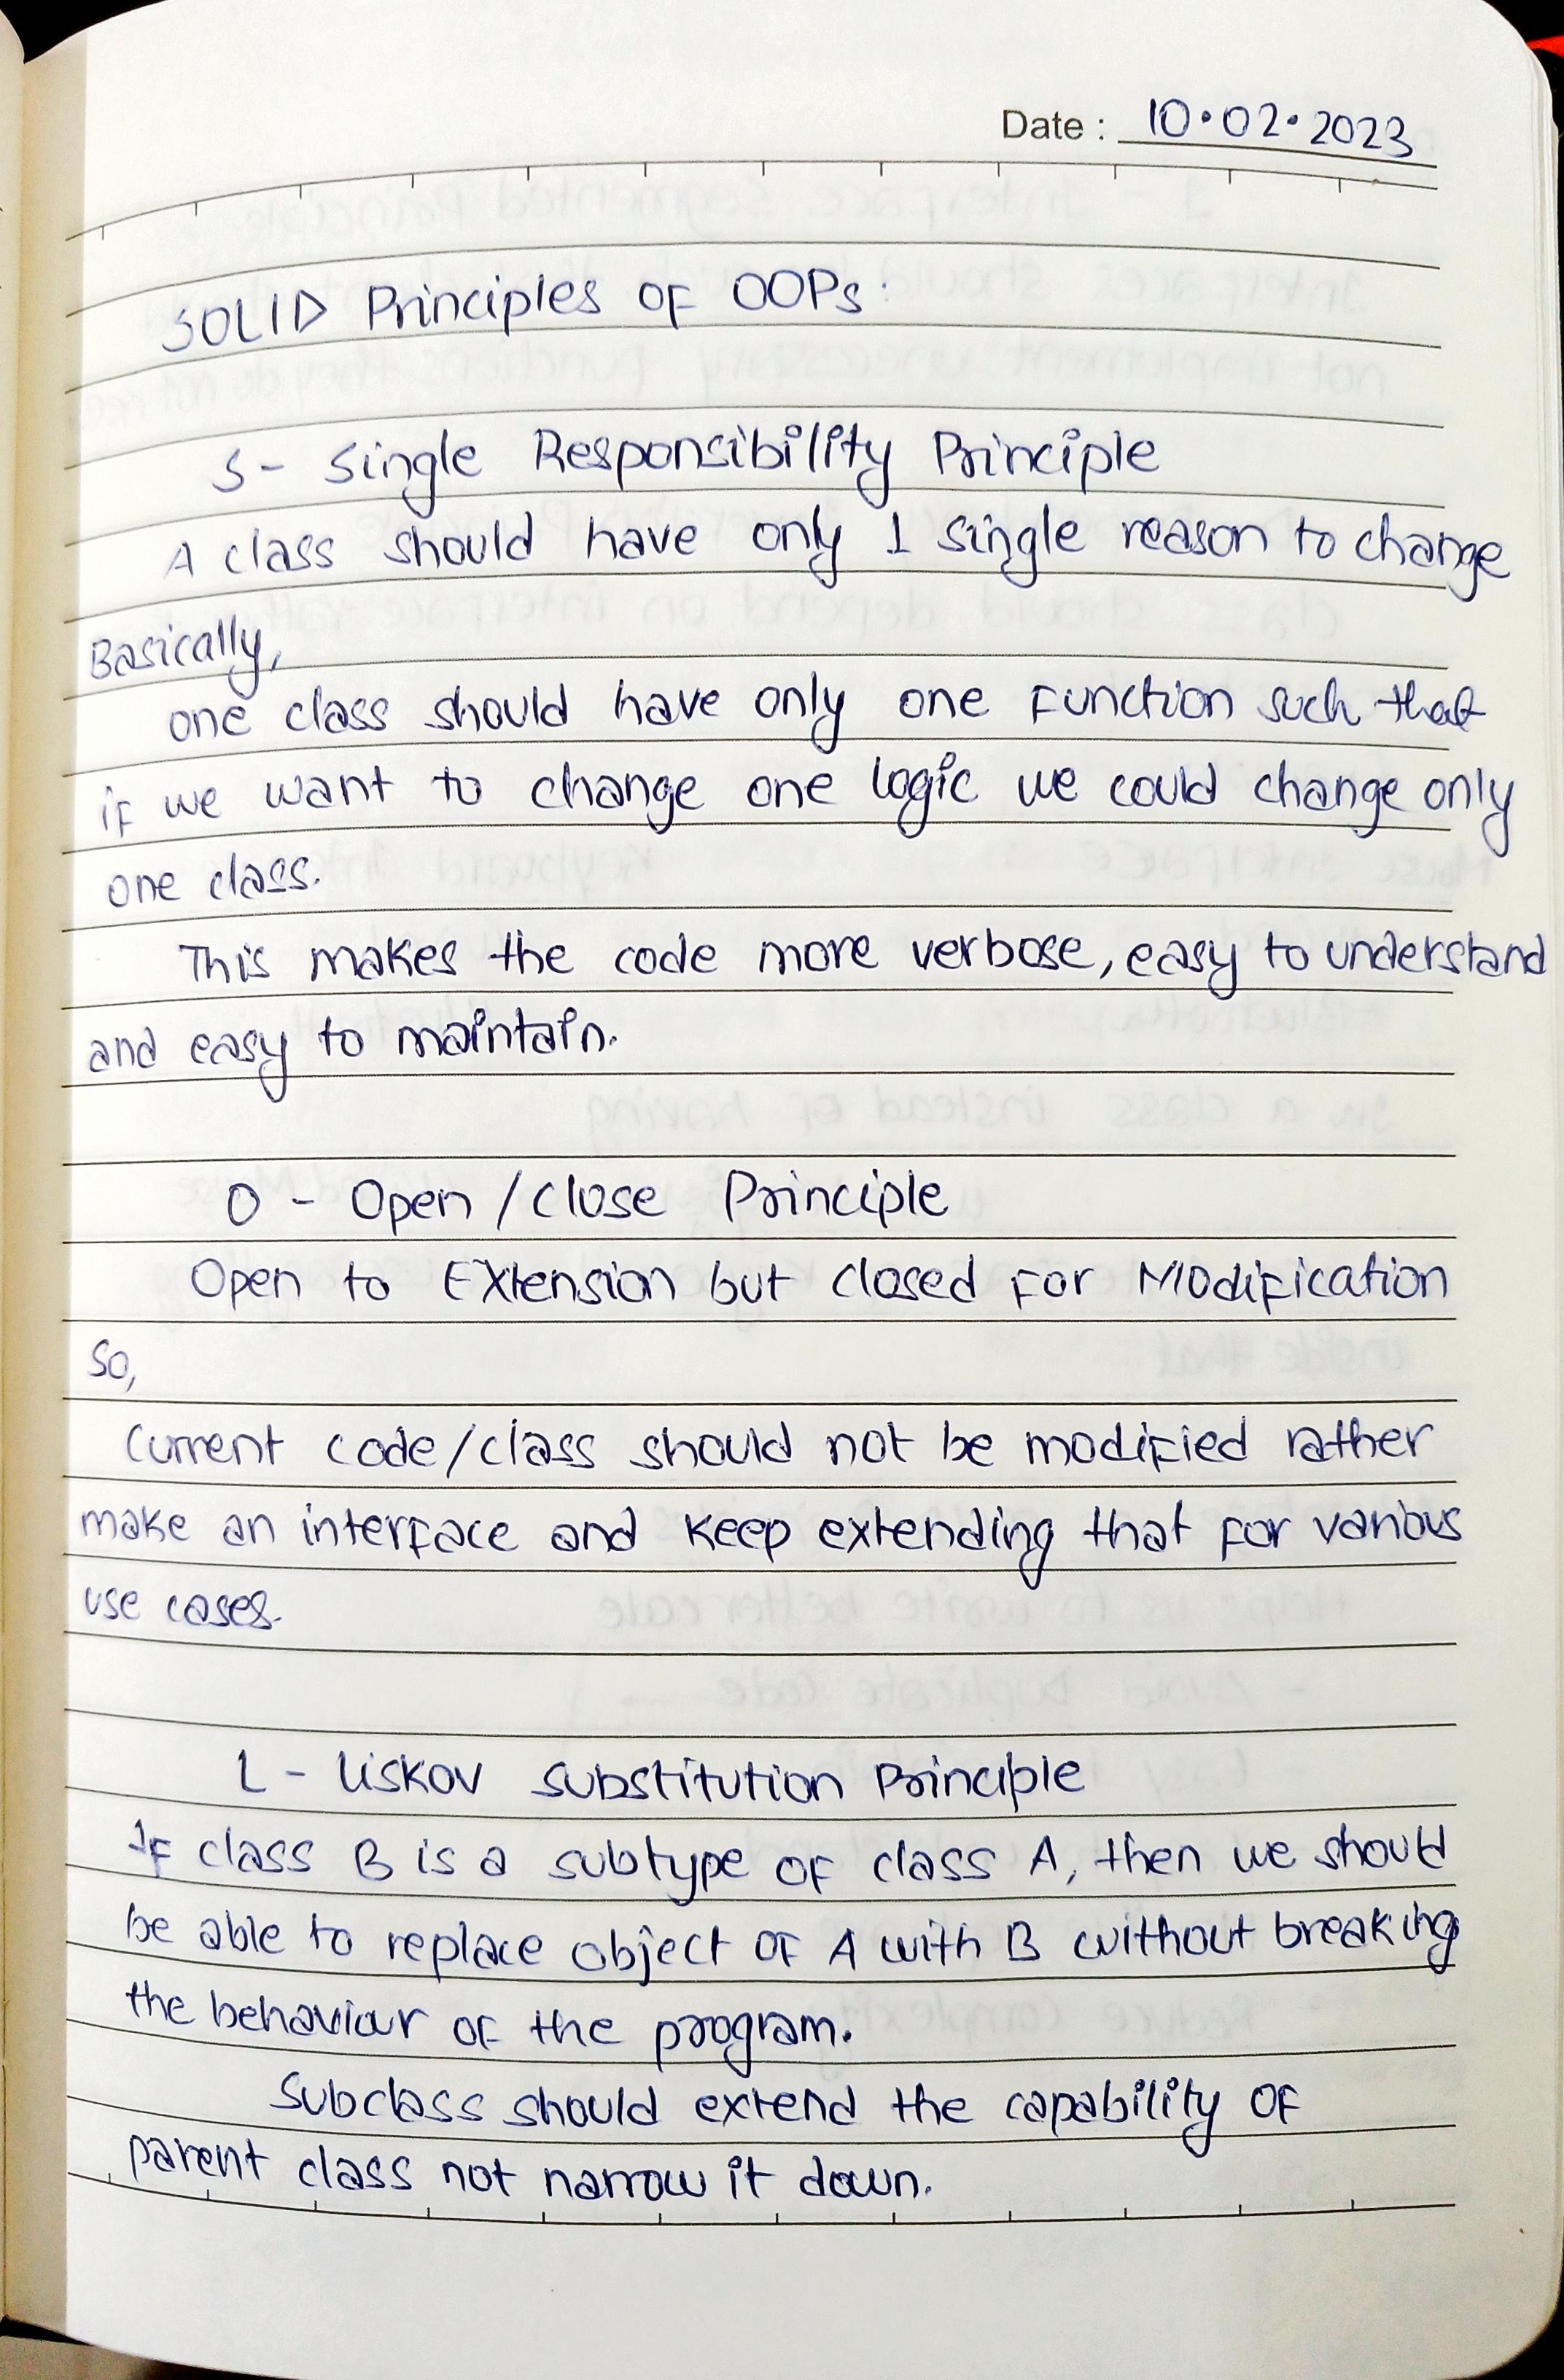 Date : 10.02.2023
SOLID Principles OF OOPs:
S- Single Responsibility Principle
A class should have only 1 single reason to change
Basically,
one class should have only one Function such that
if we want to change one logic we could change only
one class.
This makes the code more verbose, easy to understand
and easy to maintain.
O - Open / Close Principle
Open to Extension but closed for Modification
So,
Current code/class should not be modified rather
make an interface and keep extending that for various
use cases.
L - Liskov Substitution Principle
If class B is a subtype of class A, then we should
be able to replace object of A with B without breaking
the behaviour of the program.
Subclass should extend the capability of
parent class not narrow it down.